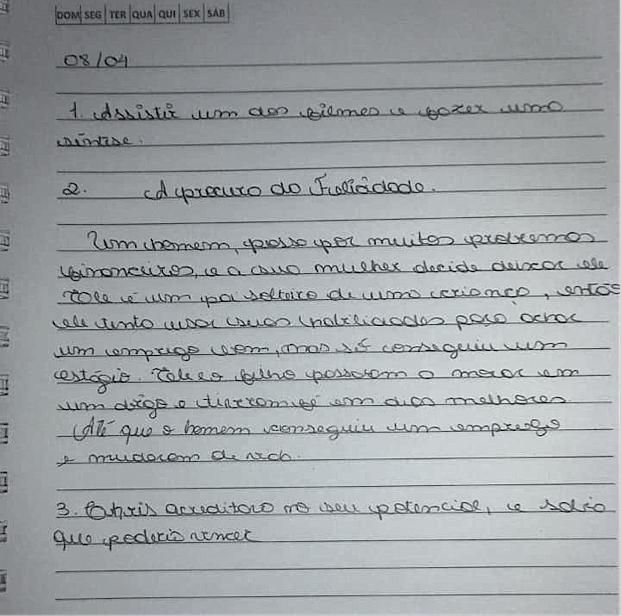 DOM SEG TER QUA QUI SEX SÁB
08/04
1. Assistir um dos filmes e fazer uma
síntese.
2. A procura da Felicidade.
Um homem, passa por muitos problemas
financeiros, e a sua mulher decide deixar ele
Ele é um pai solteiro de uma criança, então
ele tenta usar suas habiliadades para achar
um emprego bem, mas só conseguiu um
estágio. Ele e o filho passaram a morar em
um abrigo e tiveram fé em dias melhores
Até que o homem conseguiu um emprego
e mudaram de vida.
3. Chris acreditava no seu potencial, e sabia
que poderia vencer